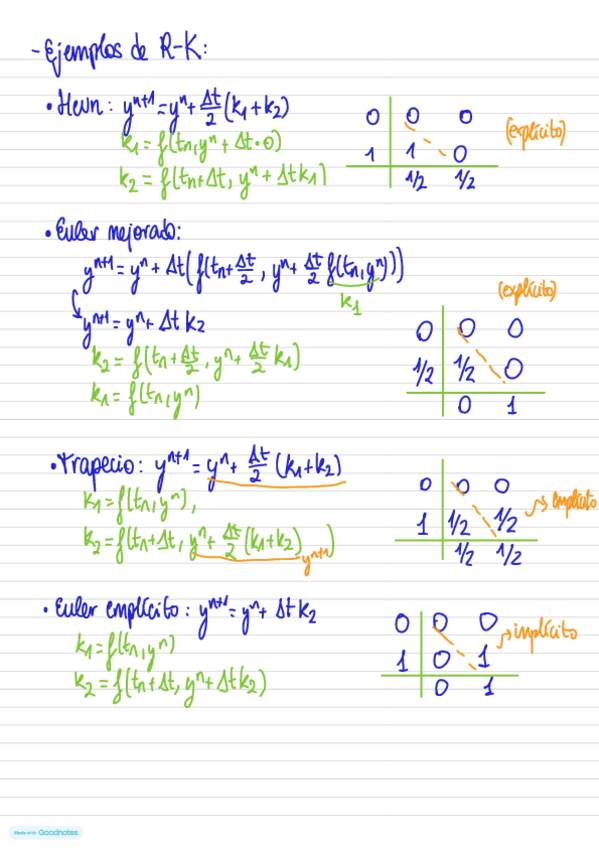 - Ejemplos de R-K:
• Heun: yⁿ⁺¹ = yⁿ + Δt/2 (k₁ + k₂)
k₁ = f(tₙ, yⁿ + Δt·0)
k₂ = f(tₙ + Δt, yⁿ + Δt k₁)
0 | 0 0
1 | 1 0
| 1/2 1/2
(explícito)
• Euler mejorado:
yⁿ⁺¹ = yⁿ + Δt(f(tₙ + Δt/2, yⁿ + Δt/2 f(tₙ, yⁿ)))
k₁
yⁿ⁺¹ = yⁿ + Δt k₂
k₂ = f(tₙ + Δt/2, yⁿ + Δt/2 k₁)
k₁ = f(tₙ, yⁿ)
(explícito)
0 | 0 0
1/2 | 1/2 0
| 0 1
• Trapecio: yⁿ⁺¹ = yⁿ + Δt/2 (k₁ + k₂)
k₁ = f(tₙ, yⁿ),
k₂ = f(tₙ + Δt, yⁿ + Δt/2 (k₁ + k₂))
yⁿ⁺¹
0 | 0 0
1 | 1/2 1/2
| 1/2 1/2
implícito
• Euler implícito: yⁿ⁺¹ = yⁿ + Δt k₂
k₁ = f(tₙ, yⁿ)
k₂ = f(tₙ + Δt, yⁿ + Δt k₂)
0 | 0 0
1 | 0 1
| 0 1
implícito
Made with Goodnotes